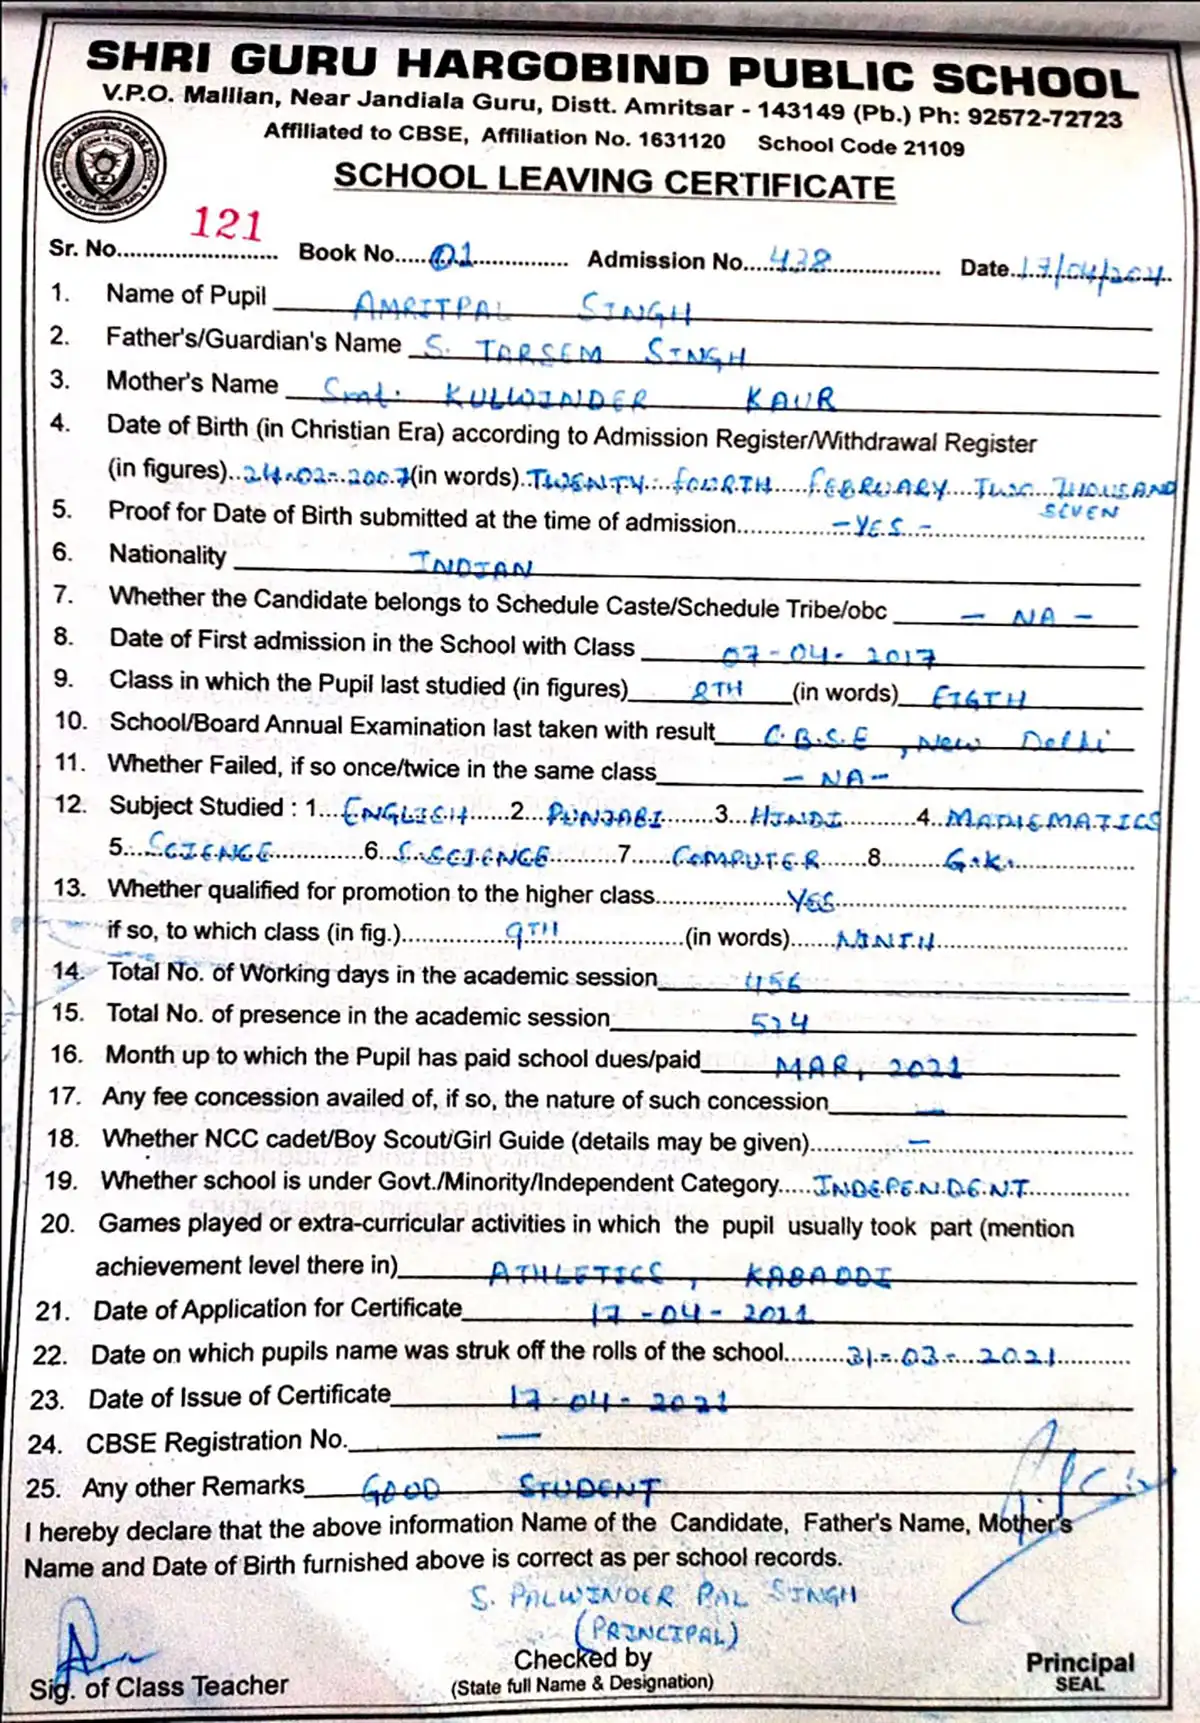 SHRI GURU HARGOBIND PUBLIC SCHOOL
V.P.O. Mallian, Near Jandiala Guru, Distt. Amritsar - 143149 (Pb.) Ph: 92572-72723
Affiliated to CBSE, Affiliation No. 1631120 School Code 21109
SCHOOL LEAVING CERTIFICATE
Sr. No. 121 Book No. 01 Admission No. 438 Date 17/04/2021
1. Name of Pupil AMRITPAL SINGH
2. Father's/Guardian's Name S. TARSEM SINGH
3. Mother's Name Smt. KULWINDER KAUR
4. Date of Birth (in Christian Era) according to Admission Register/Withdrawal Register
(in figures) 24-02-2007 (in words) TWENTY FOURTH FEBRUARY TWO THOUSAND
SEVEN
5. Proof for Date of Birth submitted at the time of admission - YES -
6. Nationality INDIAN
7. Whether the Candidate belongs to Schedule Caste/Schedule Tribe/obc - NA -
8. Date of First admission in the School with Class 07-04-2017
9. Class in which the Pupil last studied (in figures) 8TH (in words) EIGTH
10. School/Board Annual Examination last taken with result C.B.S.E, New Delhi
11. Whether Failed, if so once/twice in the same class - NA -
12. Subject Studied : 1. ENGLISH 2. PUNJABI 3. HINDI 4. MATHEMATICS
5. SCIENCE 6. S.SCIENCE 7. COMPUTER 8. G.K.
13. Whether qualified for promotion to the higher class YES
if so, to which class (in fig.) 9TH (in words) NINTH
14. Total No. of Working days in the academic session 456
15. Total No. of presence in the academic session
16. Month up to which the Pupil has paid school dues/paid MAR, 2021
17. Any fee concession availed of, if so, the nature of such concession —
18. Whether NCC cadet/Boy Scout/Girl Guide (details may be given) —
19. Whether school is under Govt./Minority/Independent Category INDEPENDENT
20. Games played or extra-curricular activities in which the pupil usually took part (mention
achievement level there in) ATHLETICS, KABADDI
21. Date of Application for Certificate 17-04-2021
22. Date on which pupils name was struk off the rolls of the school 31-03-2021
23. Date of Issue of Certificate 17-04-2021
24. CBSE Registration No. —
25. Any other Remarks GOOD STUDENT
I hereby declare that the above information Name of the Candidate, Father's Name, Mother's
Name and Date of Birth furnished above is correct as per school records.
S. PALWINDER PAL SINGH
(PRINCIPAL)
Sig. of Class Teacher Checked by Principal
(State full Name & Designation) SEAL